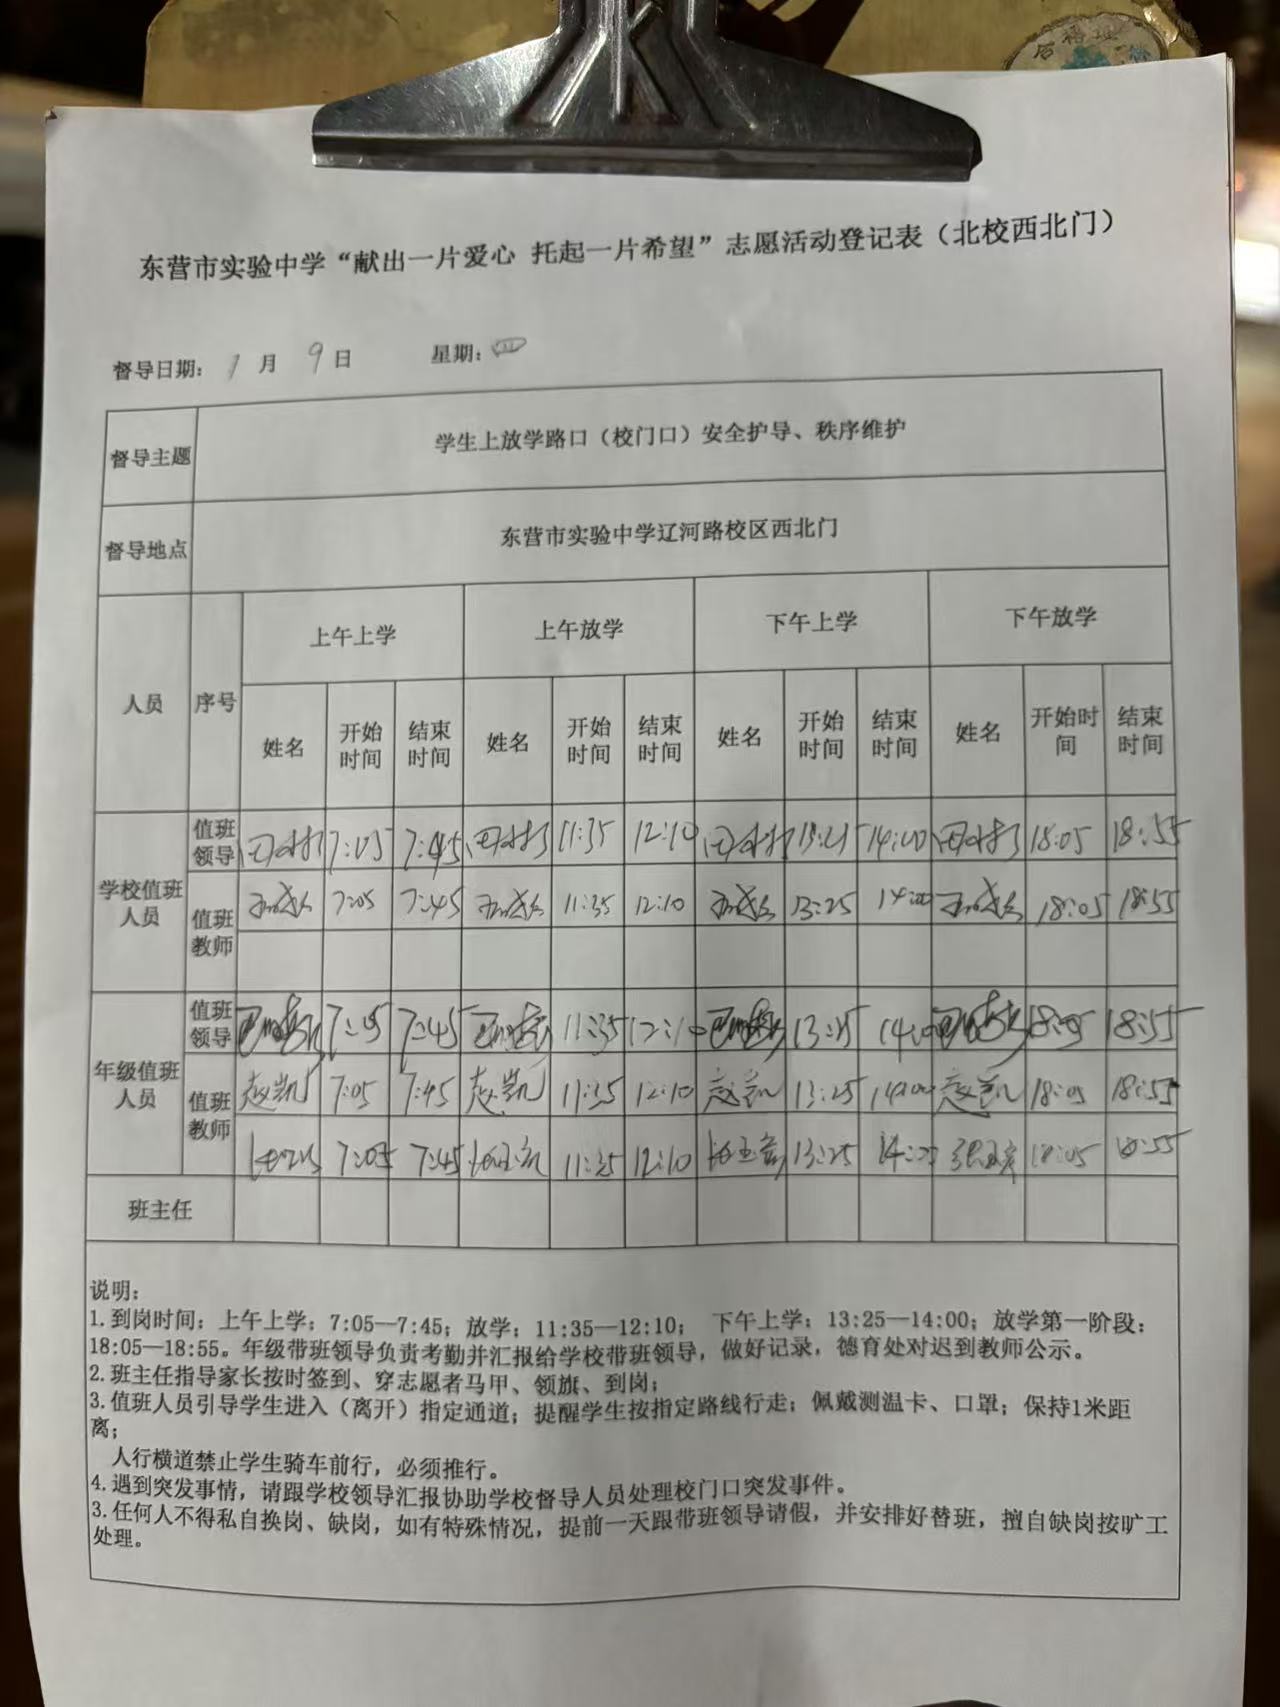 东营市实验中学“献出一片爱心 托起一片希望”志愿活动登记表（北校西北门）
督导日期： 1 月 9 日 星期：四
督导主题 学生上放学路口（校门口）安全护导、秩序维护
督导地点 东营市实验中学辽河路校区西北门
人员 序号 上午上学 上午放学 下午上学 下午放学
姓名 开始时间 结束时间 姓名 开始时间 结束时间 姓名 开始时间 结束时间 姓名 开始时间 结束时间
学校值班人员 值班领导 7:05 7:45 11:35 12:10 13:25 14:00 18:05 18:55
值班教师 7:05 7:45 11:35 12:10 13:25 14:00 18:05 18:55
年级值班人员 值班领导 7:05 7:45 11:35 12:10 13:25 14:00 18:05 18:55
值班教师 赵凯 7:05 7:45 赵凯 11:35 12:10 赵凯 13:25 14:00 赵凯 18:05 18:55
7:05 7:45 11:35 12:10 13:25 18:05 18:55
班主任
说明：
1.到岗时间：上午上学：7:05—7:45；放学：11:35—12:10； 下午上学：13:25—14:00；放学第一阶段：
18:05—18:55。年级带班领导负责考勤并汇报给学校带班领导，做好记录，德育处对迟到教师公示。
2.班主任指导家长按时签到、穿志愿者马甲、领旗、到岗；
3.值班人员引导学生进入（离开）指定通道；提醒学生按指定路线行走；佩戴测温卡、口罩；保持1米距
离；
人行横道禁止学生骑车前行，必须推行。
4.遇到突发事情，请跟学校领导汇报协助学校督导人员处理校门口突发事件。
3.任何人不得私自换岗、缺岗，如有特殊情况，提前一天跟带班领导请假，并安排好替班，擅自缺岗按旷工
处理。